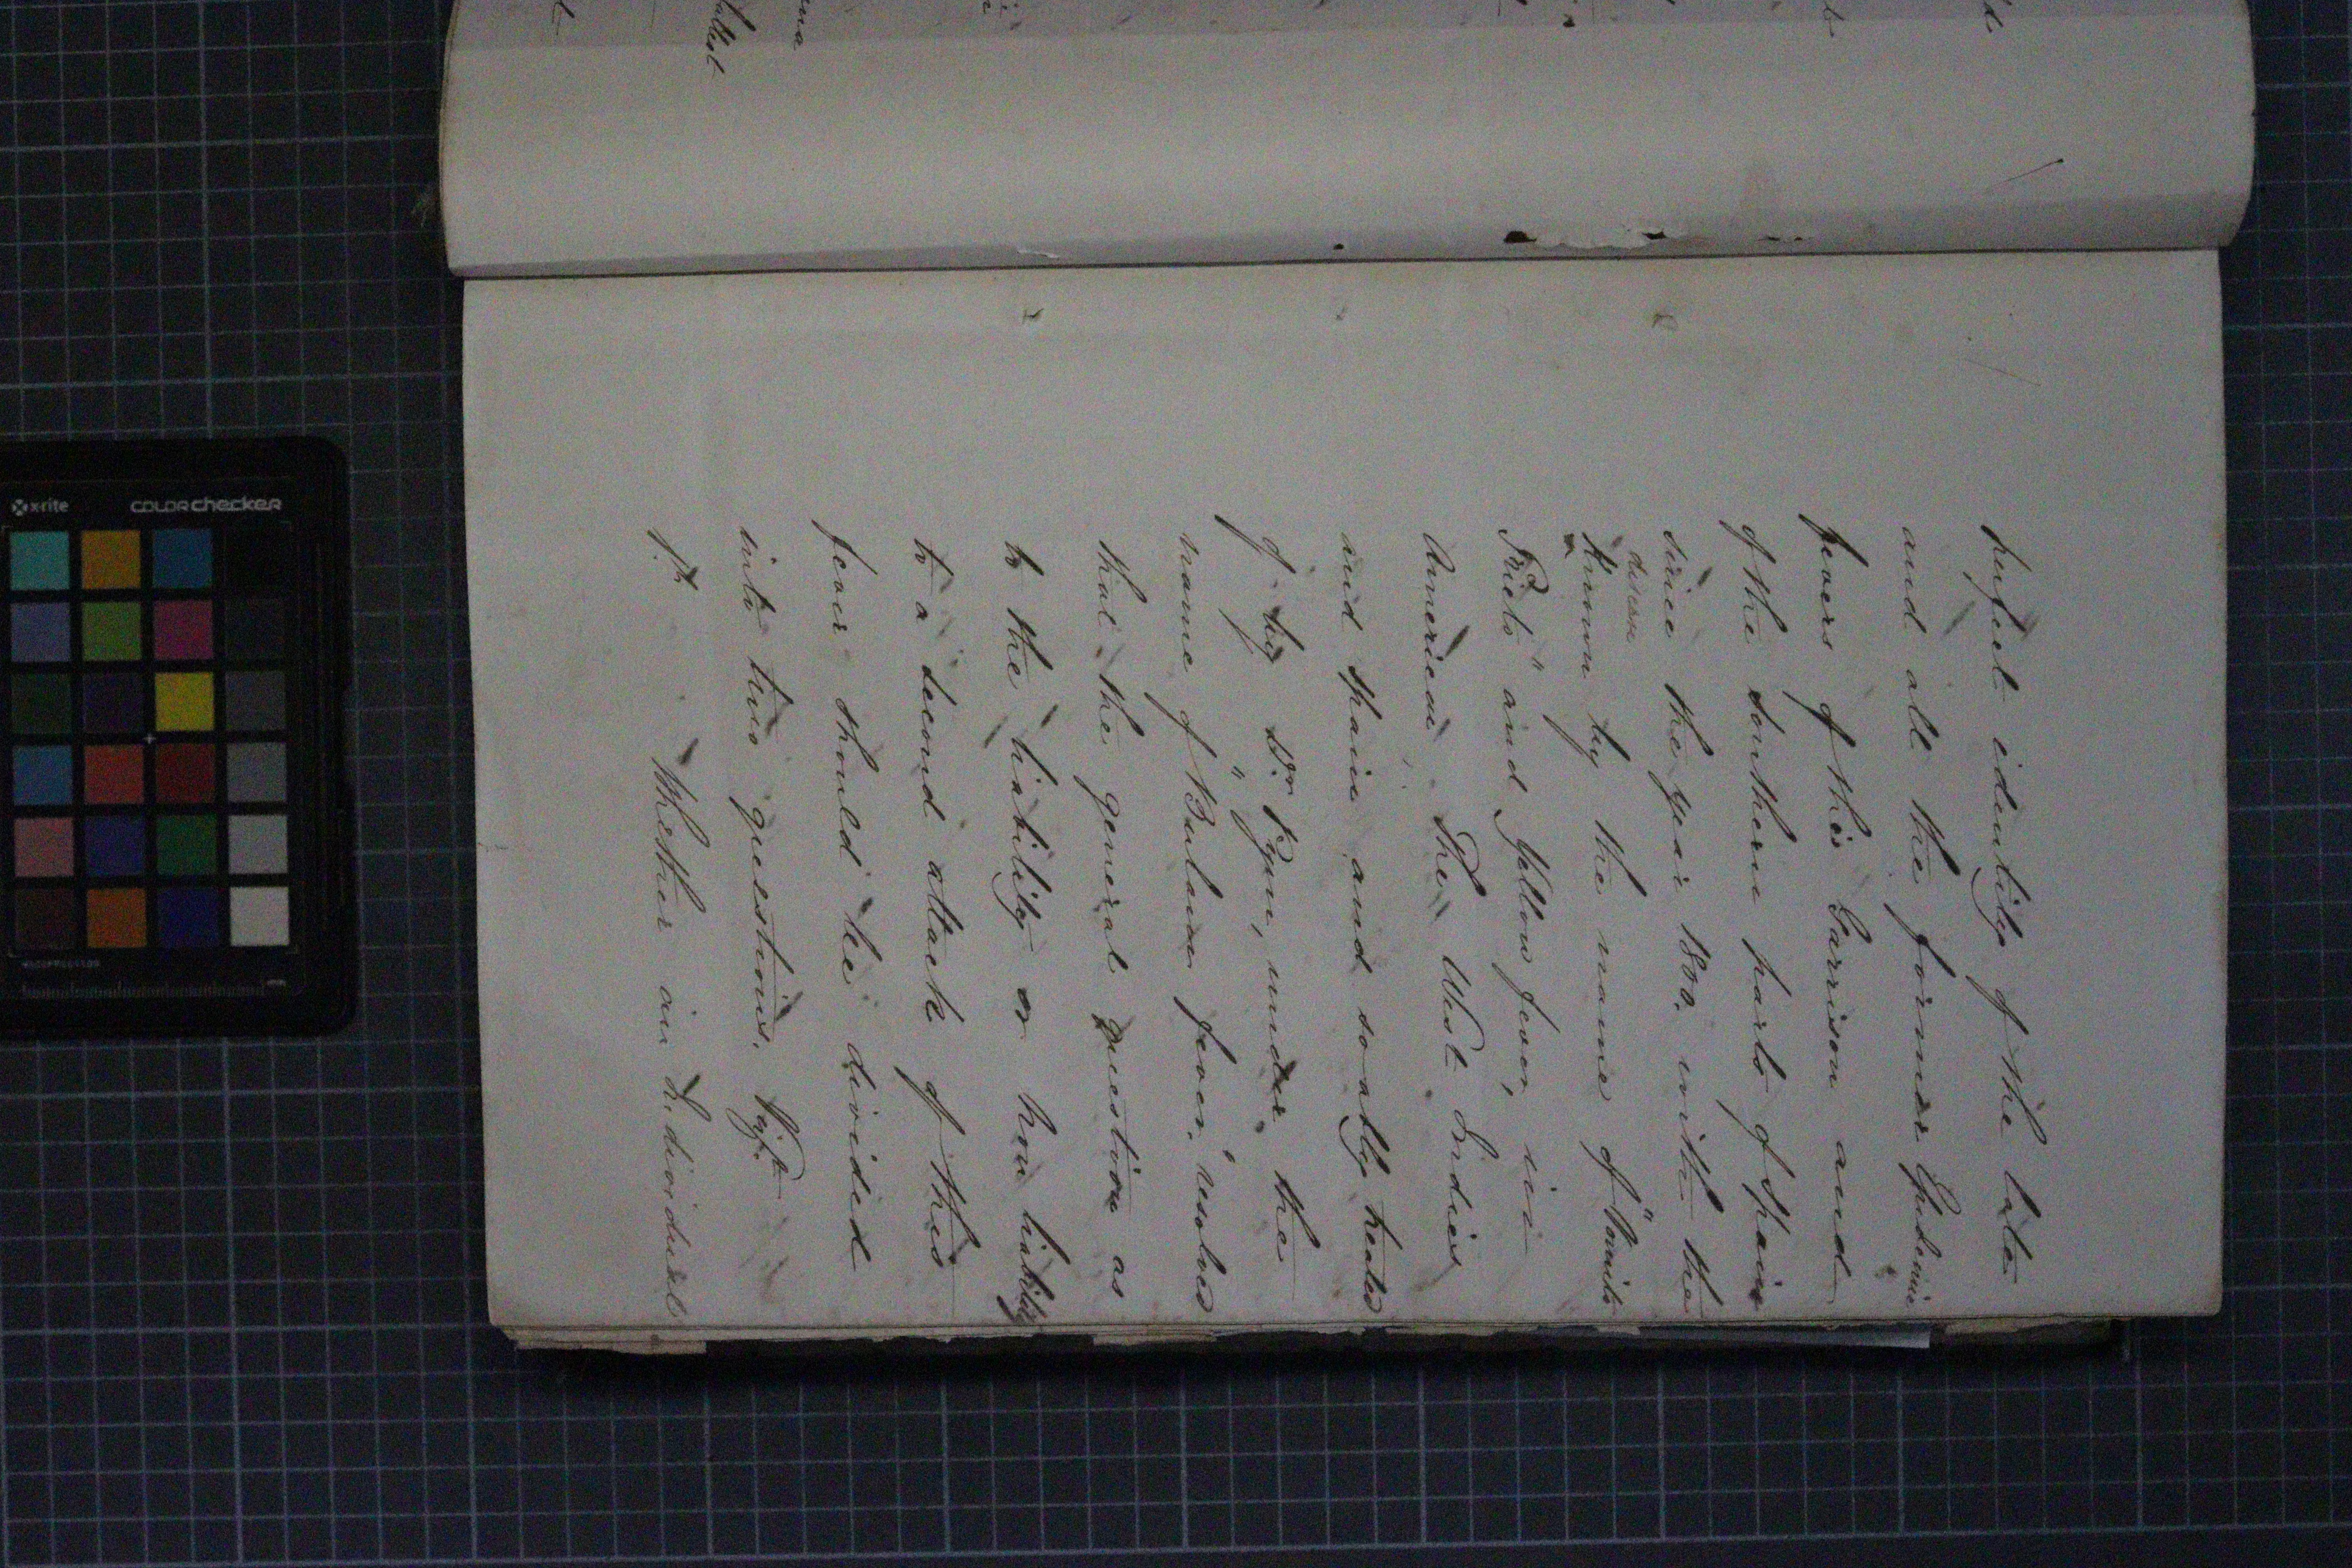 perfect identity of the late
and all the former Epidemic
fevers of this Garrison and
of the southern parts of Spain
since the year 1800. with the
disease
known by the name of "Vomito
Prieto" and Yellow fever, in
America. The West Indies
and Spain and so ably treated
of by Dr Pym, under the
name of "Bulam fever." resolved
that the general question as
to the liability or non liability
to a second attack of this
fever should be divided
into two questions. Vizt
1st Whether an Individual
x-rite
COLORchecker